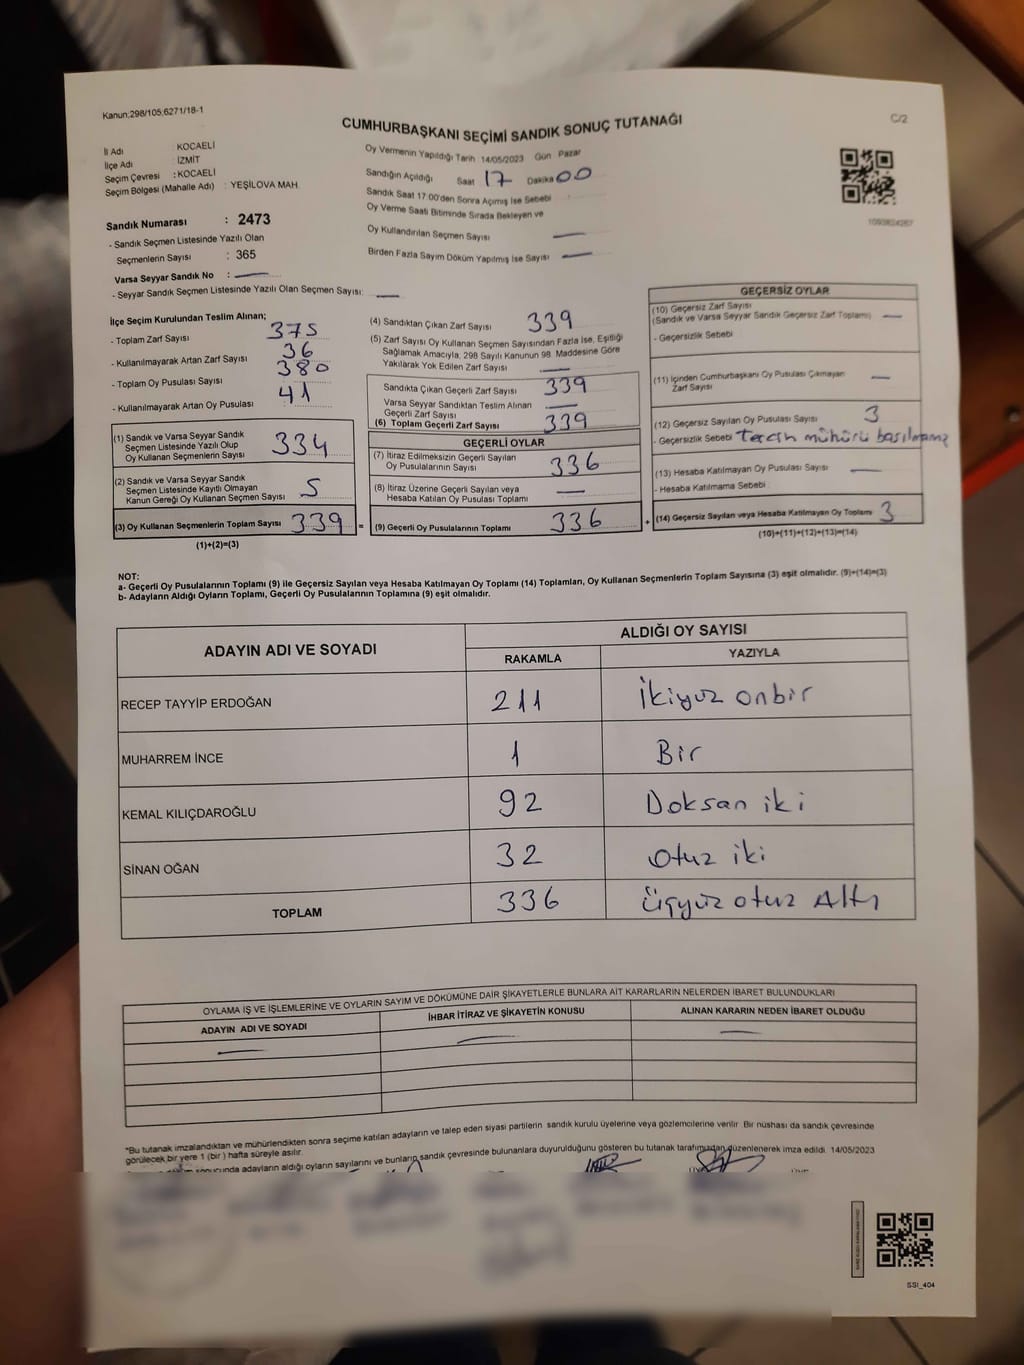 Kanun;298/105;6271/18-1
CUMHURBAŞKANI SEÇİMİ SANDIK SONUÇ TUTANAĞI
C/2
İl Adı : KOCAELİ
İlçe Adı : İZMİT
Seçim Çevresi : KOCAELİ
Seçim Bölgesi (Mahalle Adı) : YEŞİLOVA MAH.
Oy Vermenin Yapıldığı Tarih 14/05/2023 Gün Pazar
Sandığın Açıldığı Saat 17 Dakika 00
Sandık Saat 17:00'den Sonra Açılmış İse Sebebi
Oy Verme Saati Bitiminde Sırada Bekleyen ve
Oy Kullandırılan Seçmen Sayısı —
Birden Fazla Sayım Döküm Yapılmış İse Sayısı —
Sandık Numarası : 2473
- Sandık Seçmen Listesinde Yazılı Olan
Seçmenlerin Sayısı : 365
Varsa Seyyar Sandık No : —
- Seyyar Sandık Seçmen Listesinde Yazılı Olan Seçmen Sayısı: —
İlçe Seçim Kurulundan Teslim Alınan;
- Toplam Zarf Sayısı 375
- Kullanılmayarak Artan Zarf Sayısı 36
- Toplam Oy Pusulası Sayısı 380
- Kullanılmayarak Artan Oy Pusulası 41
(1) Sandık ve Varsa Seyyar Sandık
Seçmen Listesinde Yazılı Olup
Oy Kullanan Seçmenlerin Sayısı 334
(2) Sandık ve Varsa Seyyar Sandık
Seçmen Listesinde Kayıtlı Olmayan
Kanun Gereği Oy Kullanan Seçmen Sayısı 5
(3) Oy Kullanan Seçmenlerin Toplam Sayısı 339 =
(1)+(2)=(3)
(4) Sandıktan Çıkan Zarf Sayısı 339
(5) Zarf Sayısı Oy Kullanan Seçmen Sayısından Fazla İse, Eşitliği
Sağlamak Amacıyla, 298 Sayılı Kanunun 98. Maddesine Göre
Yakılarak Yok Edilen Zarf Sayısı —
Sandıkta Çıkan Geçerli Zarf Sayısı 339
Varsa Seyyar Sandıktan Teslim Alınan
Geçerli Zarf Sayısı —
(6) Toplam Geçerli Zarf Sayısı 339
GEÇERLİ OYLAR
(7) İtiraz Edilmeksizin Geçerli Sayılan
Oy Pusulalarının Sayısı 336
(8) İtiraz Üzerine Geçerli Sayılan veya
Hesaba Katılan Oy Pusulası Toplamı —
(9) Geçerli Oy Pusulalarının Toplamı 336 +
GEÇERSİZ OYLAR
(10) Geçersiz Zarf Sayısı
(Sandık ve Varsa Seyyar Sandık Geçersiz Zarf Toplamı) —
- Geçersizlik Sebebi
(11) İçinden Cumhurbaşkanı Oy Pusulası Çıkmayan
Zarf Sayısı —
(12) Geçersiz Sayılan Oy Pusulası Sayısı 3
- Geçersizlik Sebebi tercih mühürü basılmamış
(13) Hesaba Katılmayan Oy Pusulası Sayısı —
- Hesaba Katılmama Sebebi
(14) Geçersiz Sayılan veya Hesaba Katılmayan Oy Toplamı 3
(10)+(11)+(12)+(13)=(14)
NOT:
a- Geçerli Oy Pusulalarının Toplamı (9) ile Geçersiz Sayılan veya Hesaba Katılmayan Oy Toplamı (14) Toplamları, Oy Kullanan Seçmenlerin Toplam Sayısına (3) eşit olmalıdır. (9)+(14)=(3)
b- Adayların Aldığı Oyların Toplamı, Geçerli Oy Pusulalarının Toplamına (9) eşit olmalıdır.
ADAYIN ADI VE SOYADI ALDIĞI OY SAYISI
RAKAMLA YAZIYLA
RECEP TAYYİP ERDOĞAN 211 İkiyüz onbir
MUHARREM İNCE 1 Bir
KEMAL KILIÇDAROĞLU 92 Doksan iki
SİNAN OĞAN 32 otuz iki
TOPLAM 336 üçyüz otuz Altı
OYLAMA İŞ VE İŞLEMLERİNE VE OYLARIN SAYIM VE DÖKÜMÜNE DAİR ŞİKAYETLERLE BUNLARA AİT KARARLARIN NELERDEN İBARET BULUNDUKLARI
ADAYIN ADI VE SOYADI İHBAR İTİRAZ VE ŞİKAYETİN KONUSU ALINAN KARARIN NEDEN İBARET OLDUĞU
— — —
*Bu tutanak imzalandıktan ve mühürlendikten sonra seçime katılan adayların ve talep eden siyasi partilerin sandık kurulu üyelerine veya gözlemcilerine verilir. Bir nüshası da sandık çevresinde
görülecek bir yere 1 (bir) hafta süreyle asılır.
sonucunda adayların aldığı oyların sayılarını ve bunların sandık çevresinde bulunanlara duyurulduğunu gösteren bu tutanak tarafımızdan düzenlenerek imza edildi. 14/05/2023
SSI_404